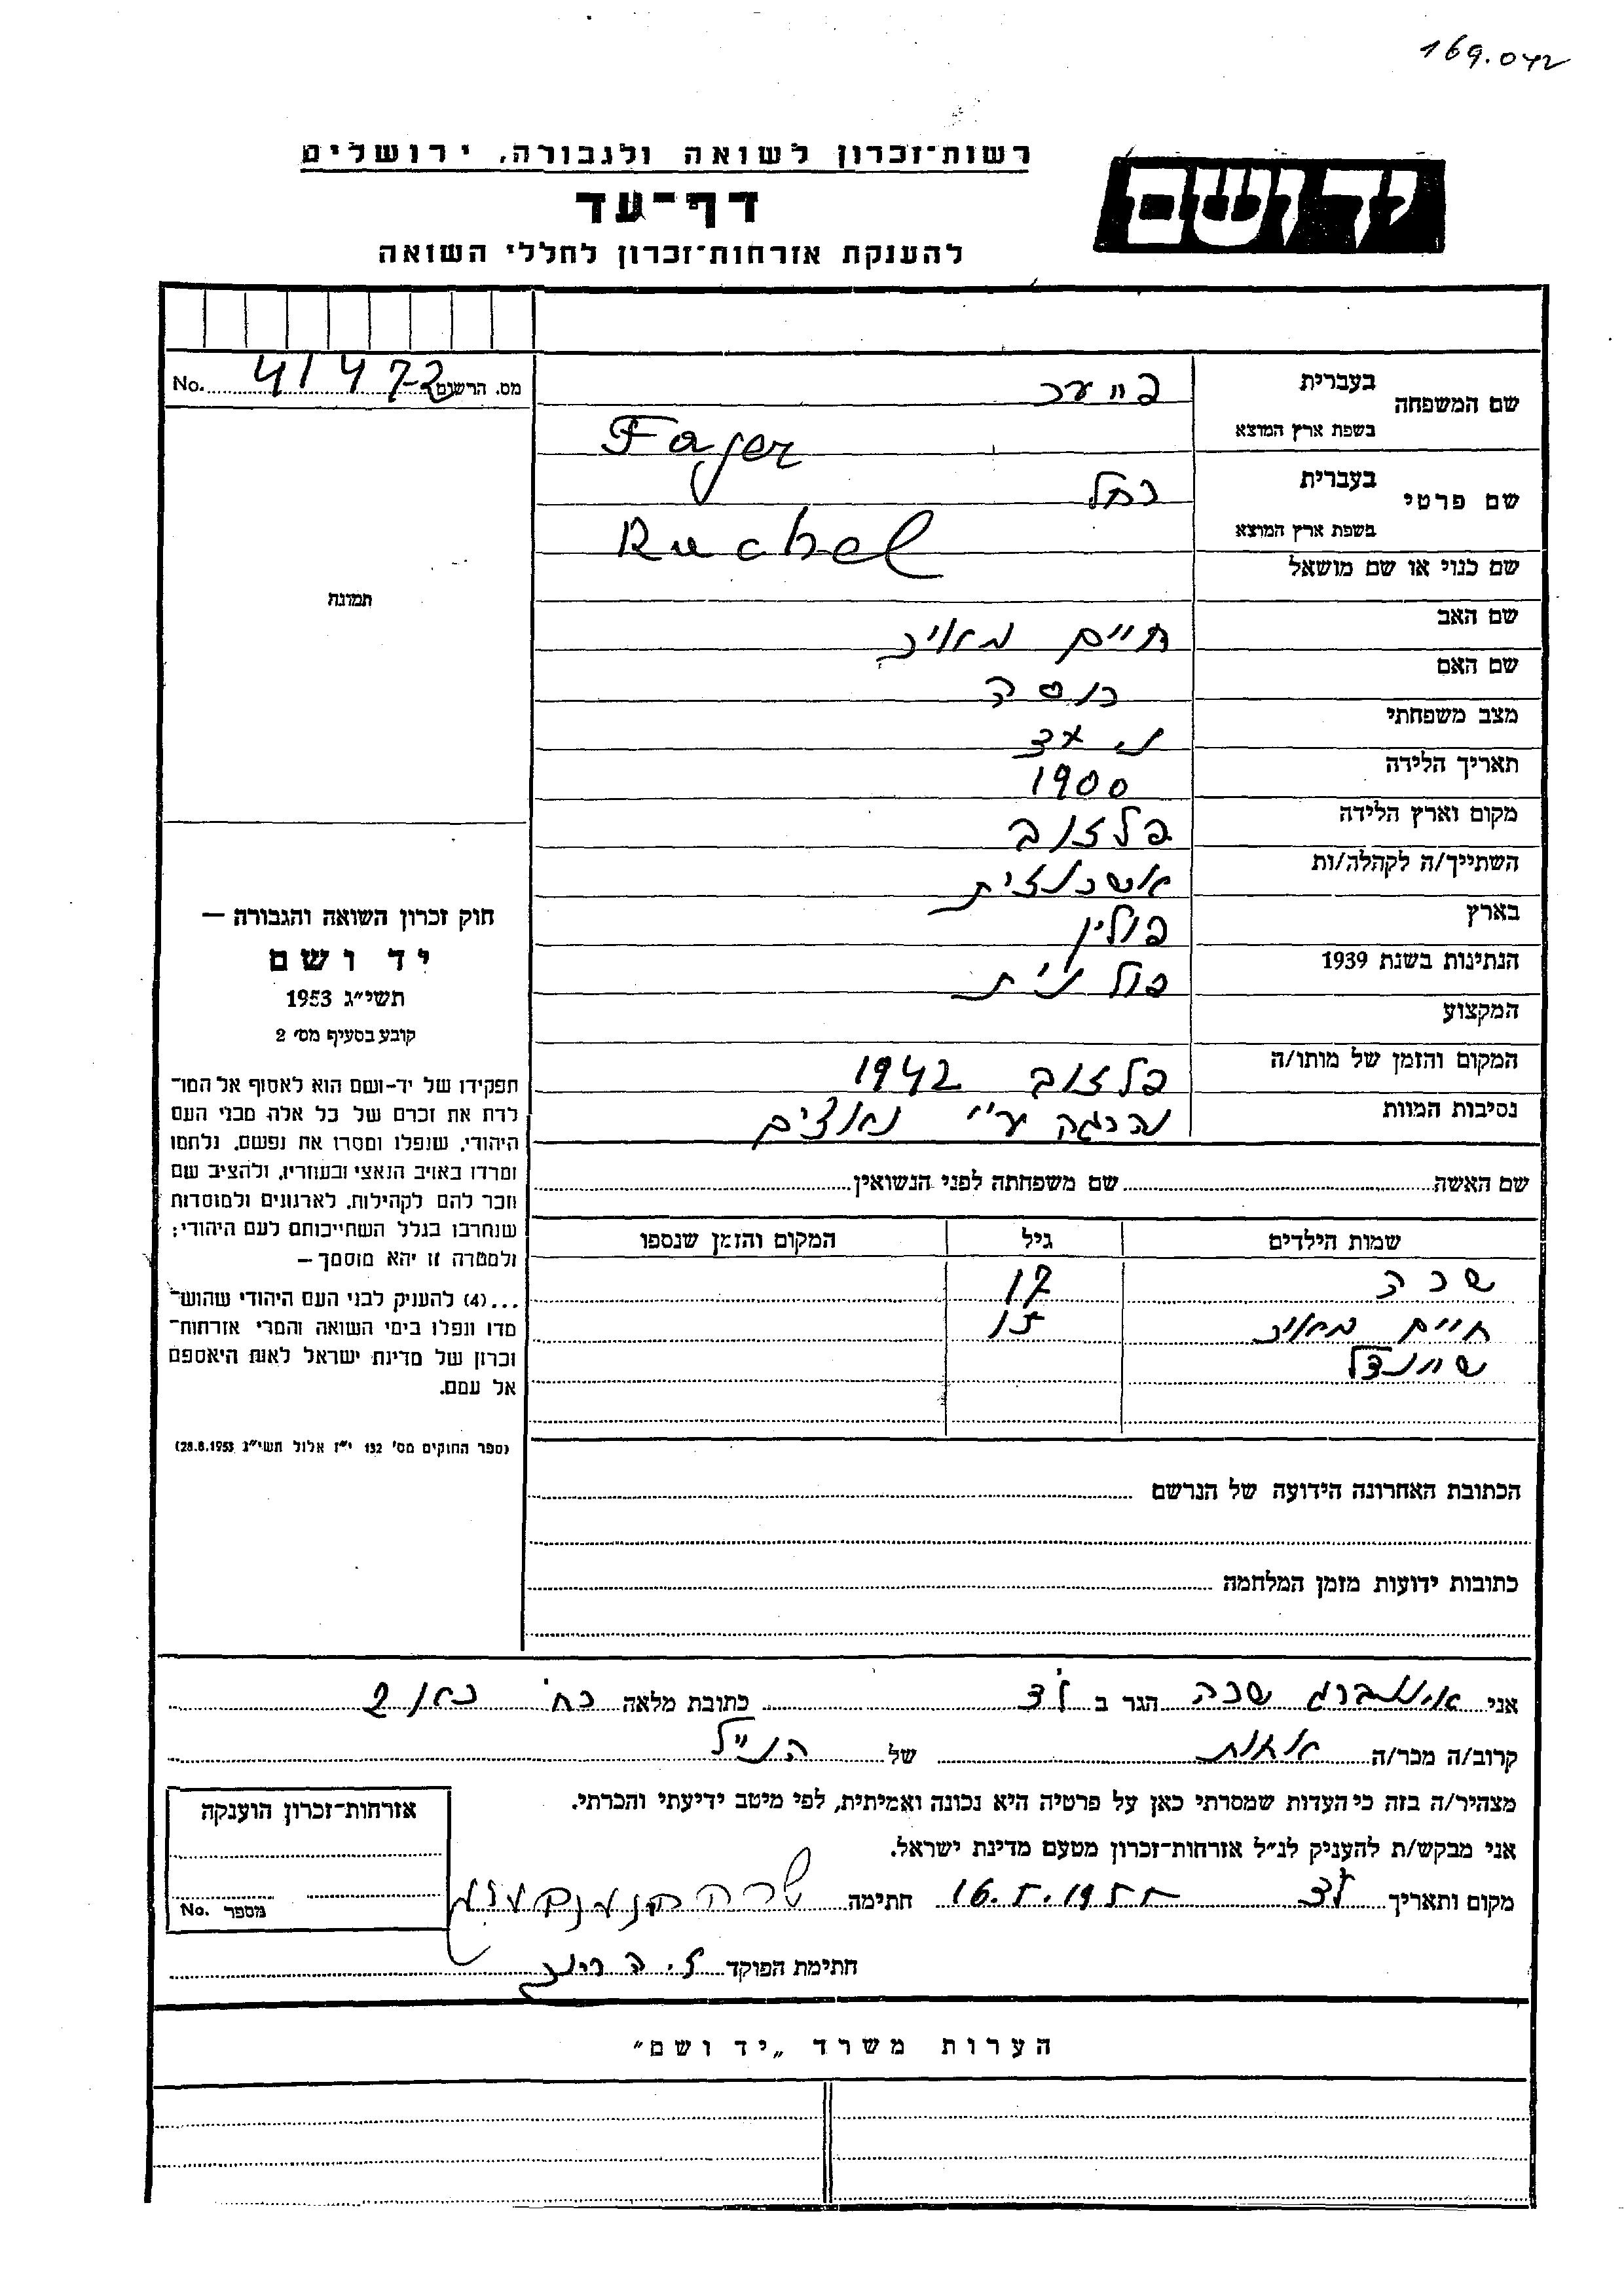 169.042
רשות־זכרון לשואה ולגבורה, ירושלים
יד ושם
דף־עד
להענקת אזרחות־זכרון לחללי השואה
מס. הרשום 41472 No.
שם המשפחה
בעברית פייער
בשפת ארץ המוצא Fajer
שם פרטי
בעברית רחל
בשפת ארץ המוצא Ruchel
שם כנוי או שם מושאל
שם האב חיים מאיר
שם האם
מצב משפחתי
תאריך הלידה 1900
מקום וארץ הלידה פלזוב
השתייך/ה לקהלה/ות אשכנזית
בארץ פולין
הנתינות בשנת 1939 פולנית
המקצוע
המקום והזמן של מותו/ה פלזוב 1942
נסיבות המוות נהרגה ע״י נאצים
תמונה
חוק זכרון השואה והגבורה —
יד ושם
תשי״ג 1953
קובע בסעיף מס׳ 2
תפקידו של יד-ושם הוא לאסוף אל המו־
לדת את זכרם של כל אלה מבני העם
היהודי, שנפלו ומסרו את נפשם, נלחמו
ומרדו באויב הנאצי ובעוזריו, ולהציב שם
וזכר להם לקהילות, לארגונים ולמוסדות
שנחרבו בגלל השתייכותם לעם היהודי;
ולמטרה זו יהא מוסמך —
...(4) להעניק לבני העם היהודי שהוש־
מדו ונפלו בימי השואה והמרי אזרחות־
זכרון של מדינת ישראל לאות היאספם
אל עמם.
(ספר החוקים מס׳ 132 י״ז אלול תשי״ג 28.8.1953)
שם האשה שם משפחתה לפני הנשואין
שמות הילדים גיל המקום והזמן שנספו
שרה 17
חיים מאיר 15
שיינדל
הכתובת האחרונה הידועה של הנרשם
כתובות ידועות מזמן המלחמה
אני שרה הגר ב לוד כתובת מלאה רח׳
קרוב/ה מכר/ה אחות של הנ״ל
מצהיר/ה בזה כי העדות שמסרתי כאן על פרטיה היא נכונה ואמיתית, לפי מיטב ידיעתי והכרתי.
אני מבקש/ת להעניק לנ״ל אזרחות־זכרון מטעם מדינת ישראל.
מקום ותאריך לוד 16.5.1955 חתימה שרה
חתימת הפוקד
אזרחות־זכרון הוענקה
מספר No.
הערות משרד „יד ושם״